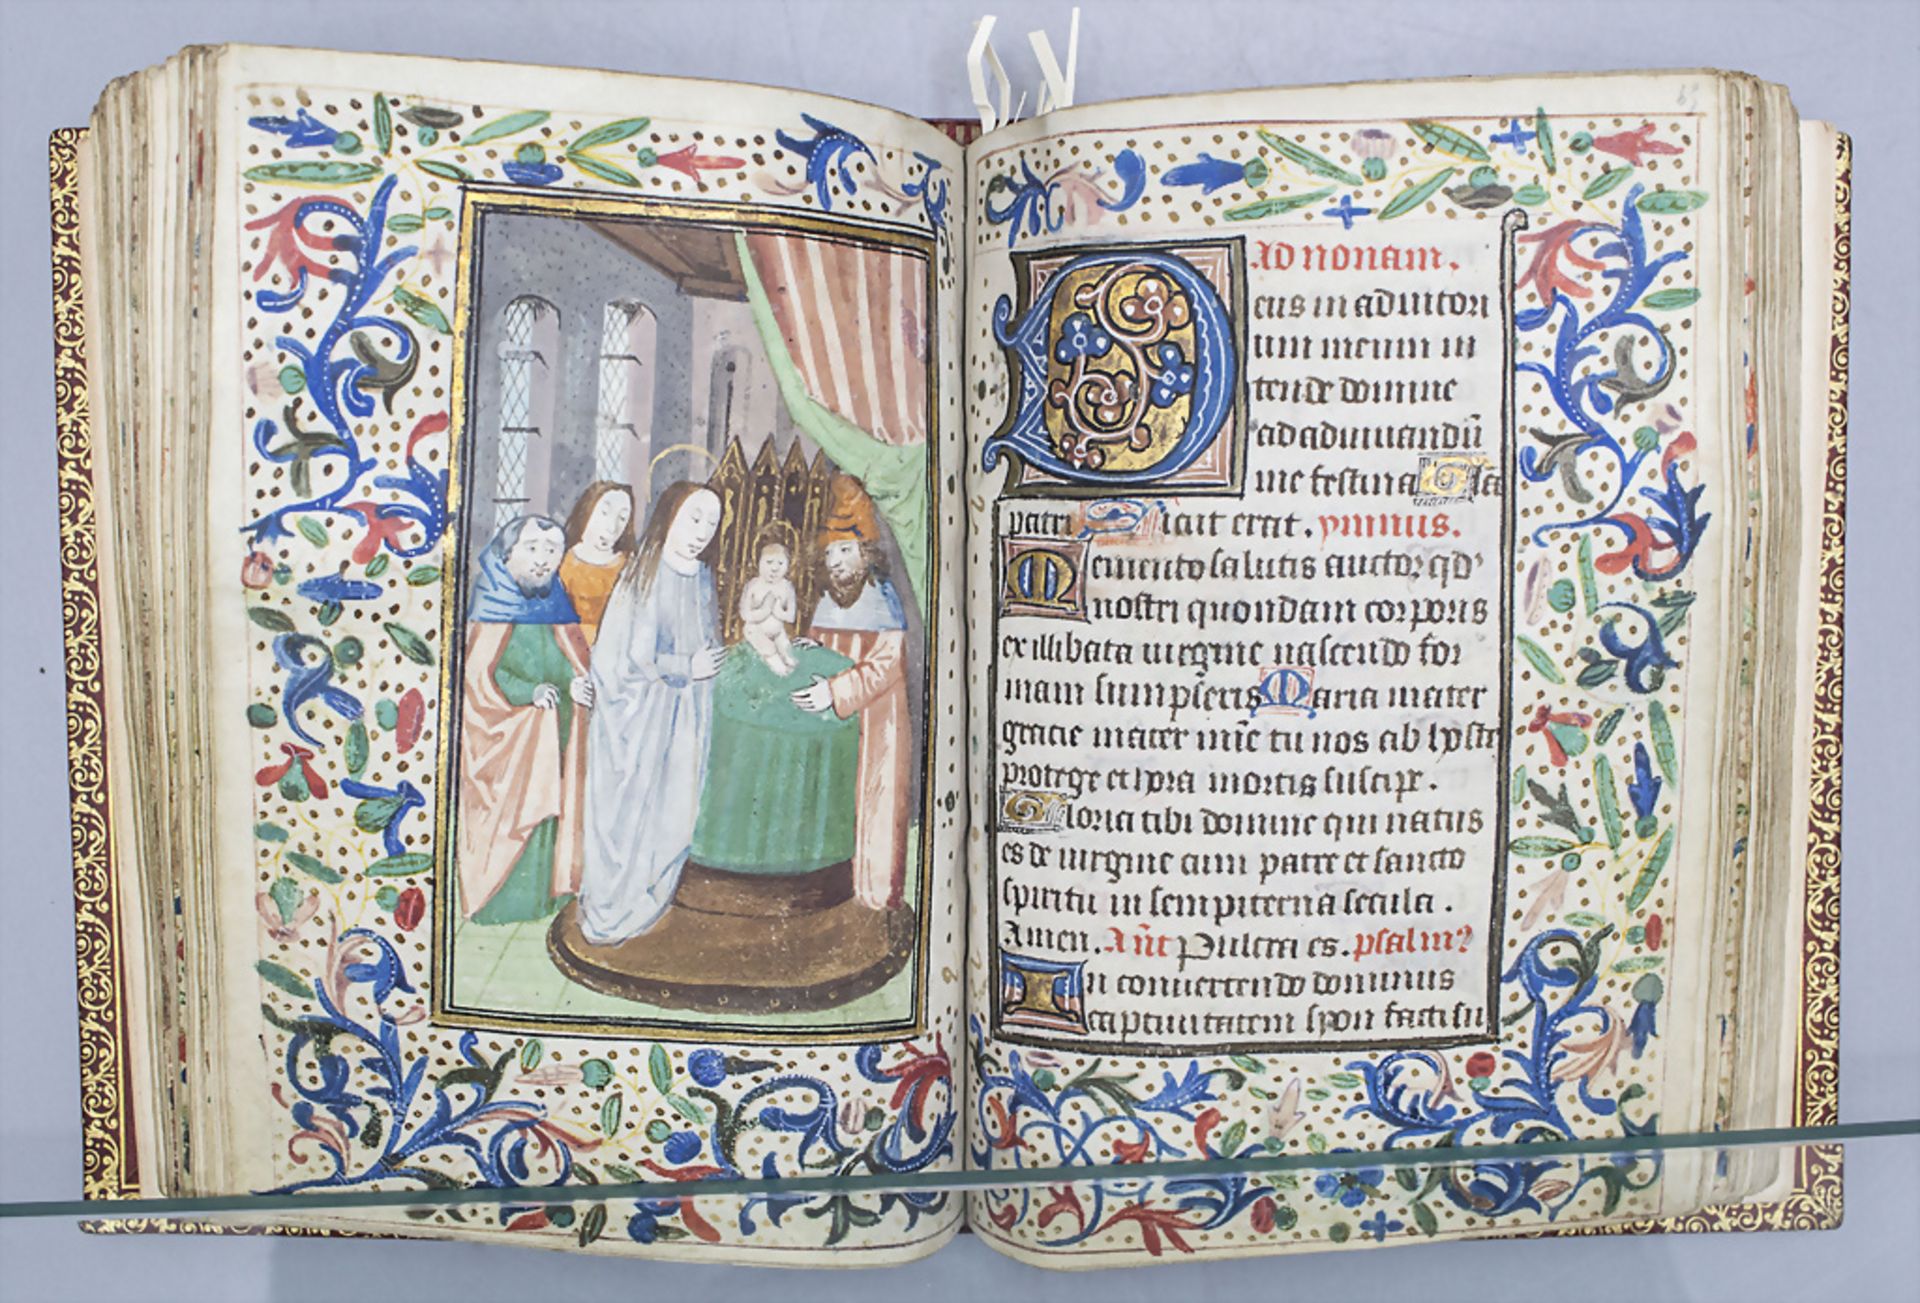 Ad nonam.
Deus in adiutori
um meum in
tende domine
ad adiuuandū
me festina Gła
patri Sicut erat. ymnus.
Memento salutis auctor qd'
nostri quondam corporis
ex illibata uirgine nascendo for
mam sumpseris Maria mater
gracie mater mīe tu nos ab hoste
protege et hora mortis suscipe.
Gloria tibi domine qui natus
es de uirgine cum patre et sancto
spiritu in sempiterna secula.
Amen. Añt Pulcra es. psalm9
In conuertendo dominus
captiuitatem syon facti su